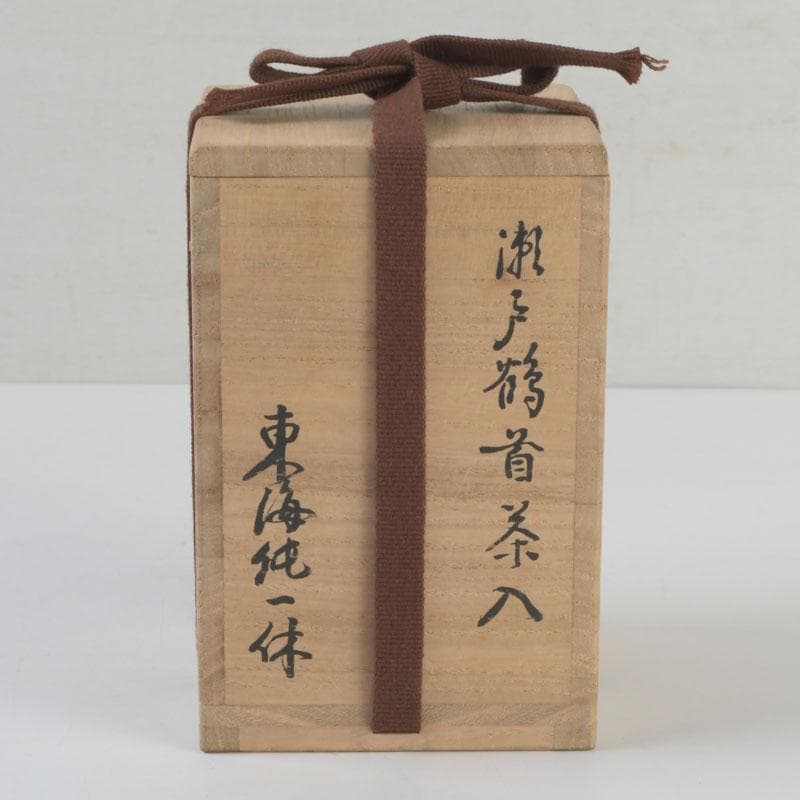 瀬戸鶴首茶入
東海純一休